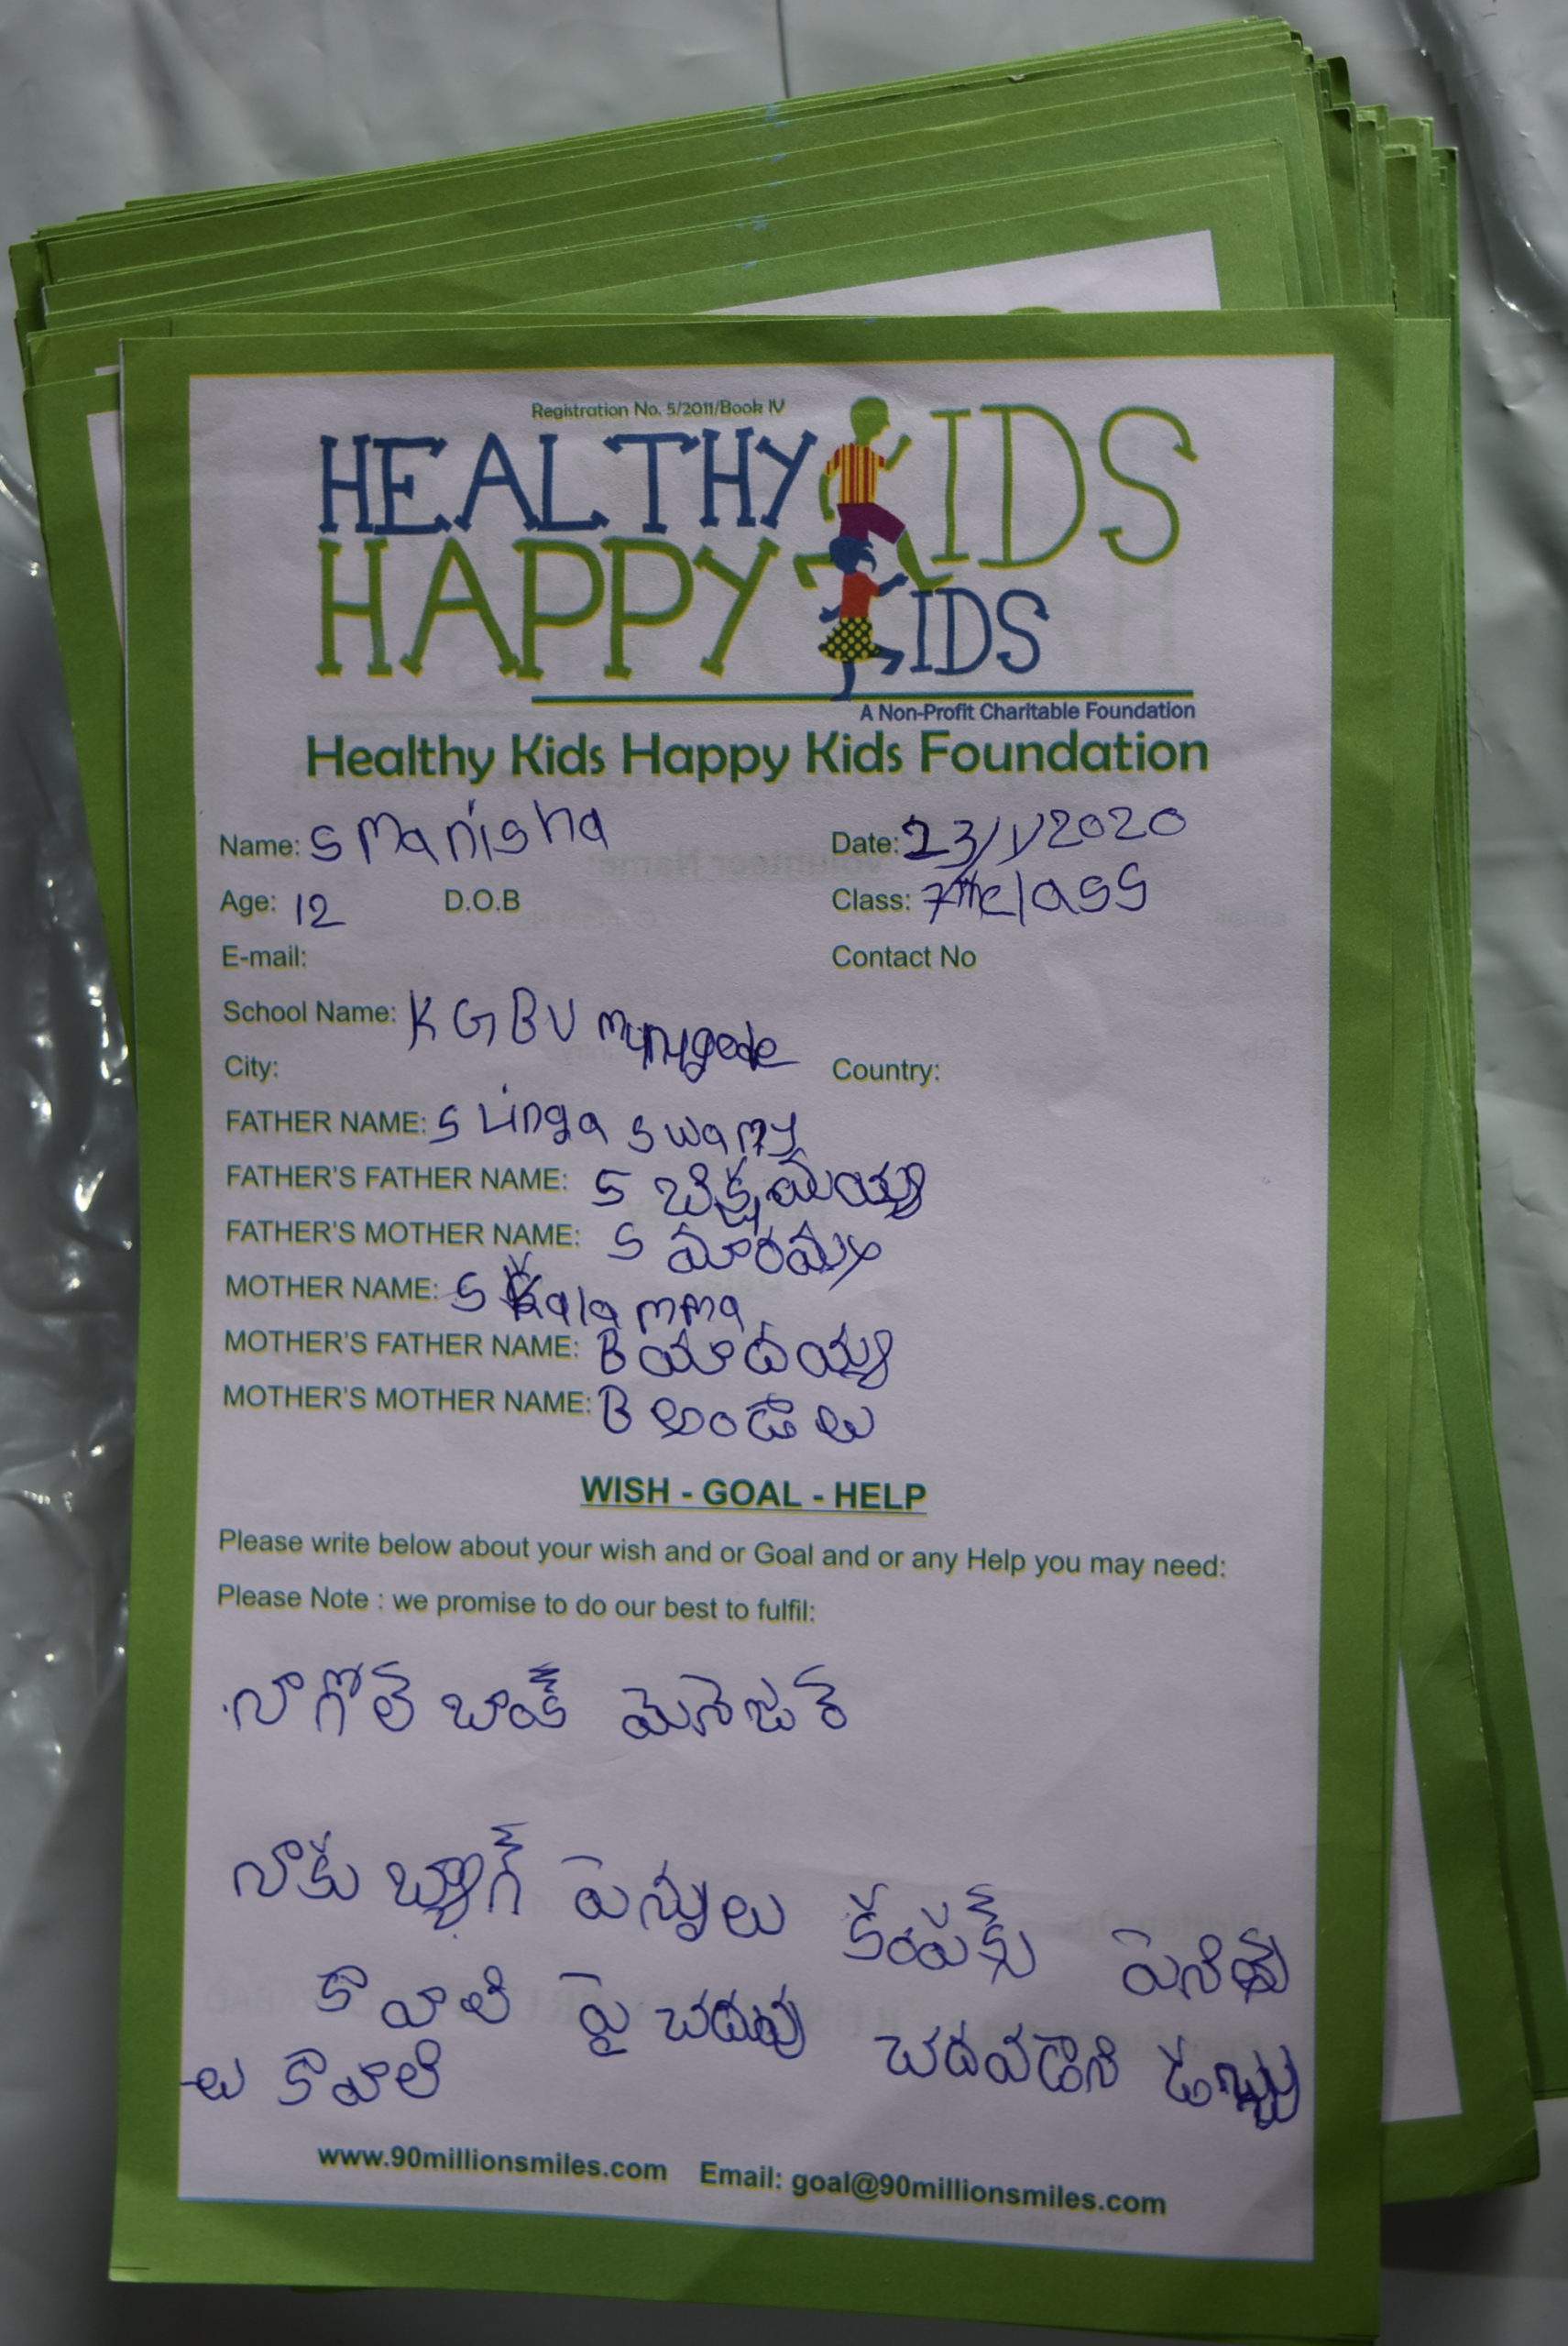 Registration No. 5/2011/Book IV
HEALTHY KIDS
HAPPY KIDS
A Non-Profit Charitable Foundation
Healthy Kids Happy Kids Foundation
Name: S Manisha Date: 23/1/2020
Age: 12 D.O.B Class: 7th class
E-mail: Contact No
School Name: K G B V
City: Country:
FATHER NAME: S Linga Swamy
FATHER'S FATHER NAME: S బిక్షమయ్య
FATHER'S MOTHER NAME: S మారమ్మ
MOTHER NAME: S Kalamma
MOTHER'S FATHER NAME: B యాదయ్య
MOTHER'S MOTHER NAME: B అండాలు
WISH - GOAL - HELP
Please write below about your wish and or Goal and or any Help you may need:
Please Note : we promise to do our best to fulfil:
నా గోల్ బాంక్ మెనెజర్
నాకు బ్యాగ్ పెన్నులు కంపక్సు పెనిళు
కావాలి పై చదువు చదవడాని డబ్బు
లు కావాలి
www.90millionsmiles.com Email: goal@90millionsmiles.com